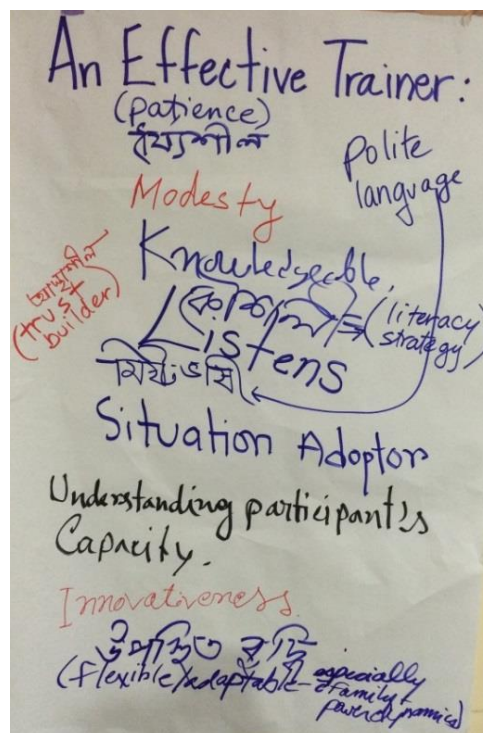 An Effective Trainer:
(patience)
ধৈয্যশীল
polite
language
Modesty
Knowledgeable,
(literacy
strategy)
(trust
builder)
Listens
Situation Adoptor
Understanding participant's
Capacity.
Innovativeness.
উপস্থিত বুদ্ধি
(flexible/adaptable- especially
family +
power dynamics)